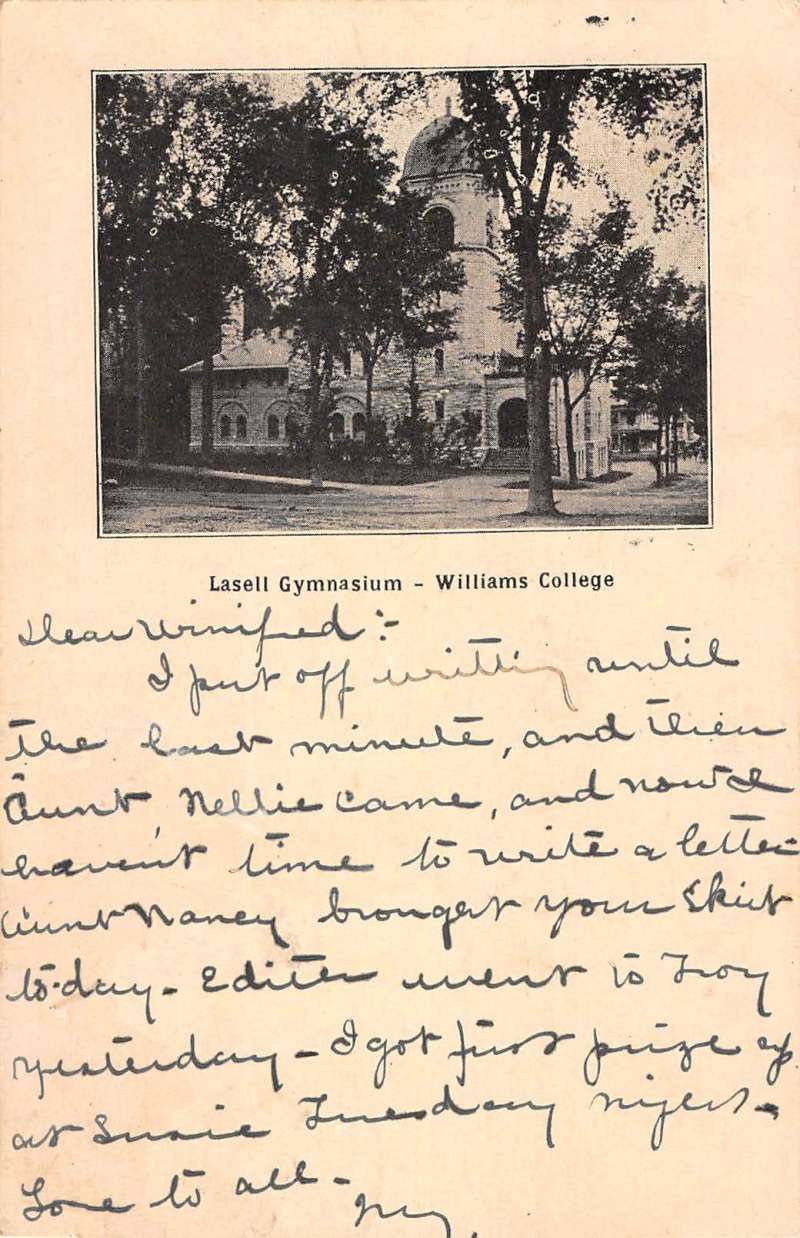 Lasell Gymnasium - Williams College
Dear Winifred:-
I put off writting until
the last minute, and then
Aunt Nellie came, and now I
haven't time to write a letter
Aunt Nancy brought your skirt
to-day- Edith went to Troy
yesterday - I got first prize up
at Susie Tuesday night-
Love to all-